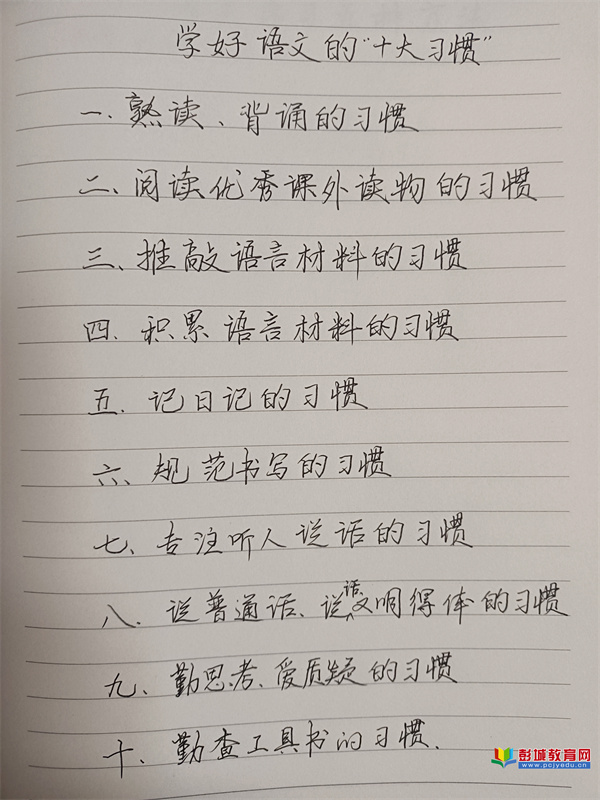 学好语文的"十大习惯"
一.熟读、背诵的习惯
二、阅读优秀课外读物的习惯
三、推敲语言材料的习惯
四.积累语言材料的习惯
五.记日记的习惯
六、规范书写的习惯
七、专注听人说话的习惯
八.说普通话、说话文明得体的习惯
九、勤思考、爱质疑的习惯
十、勤查工具书的习惯.
彭城教育网
www.pcjyedu.cn